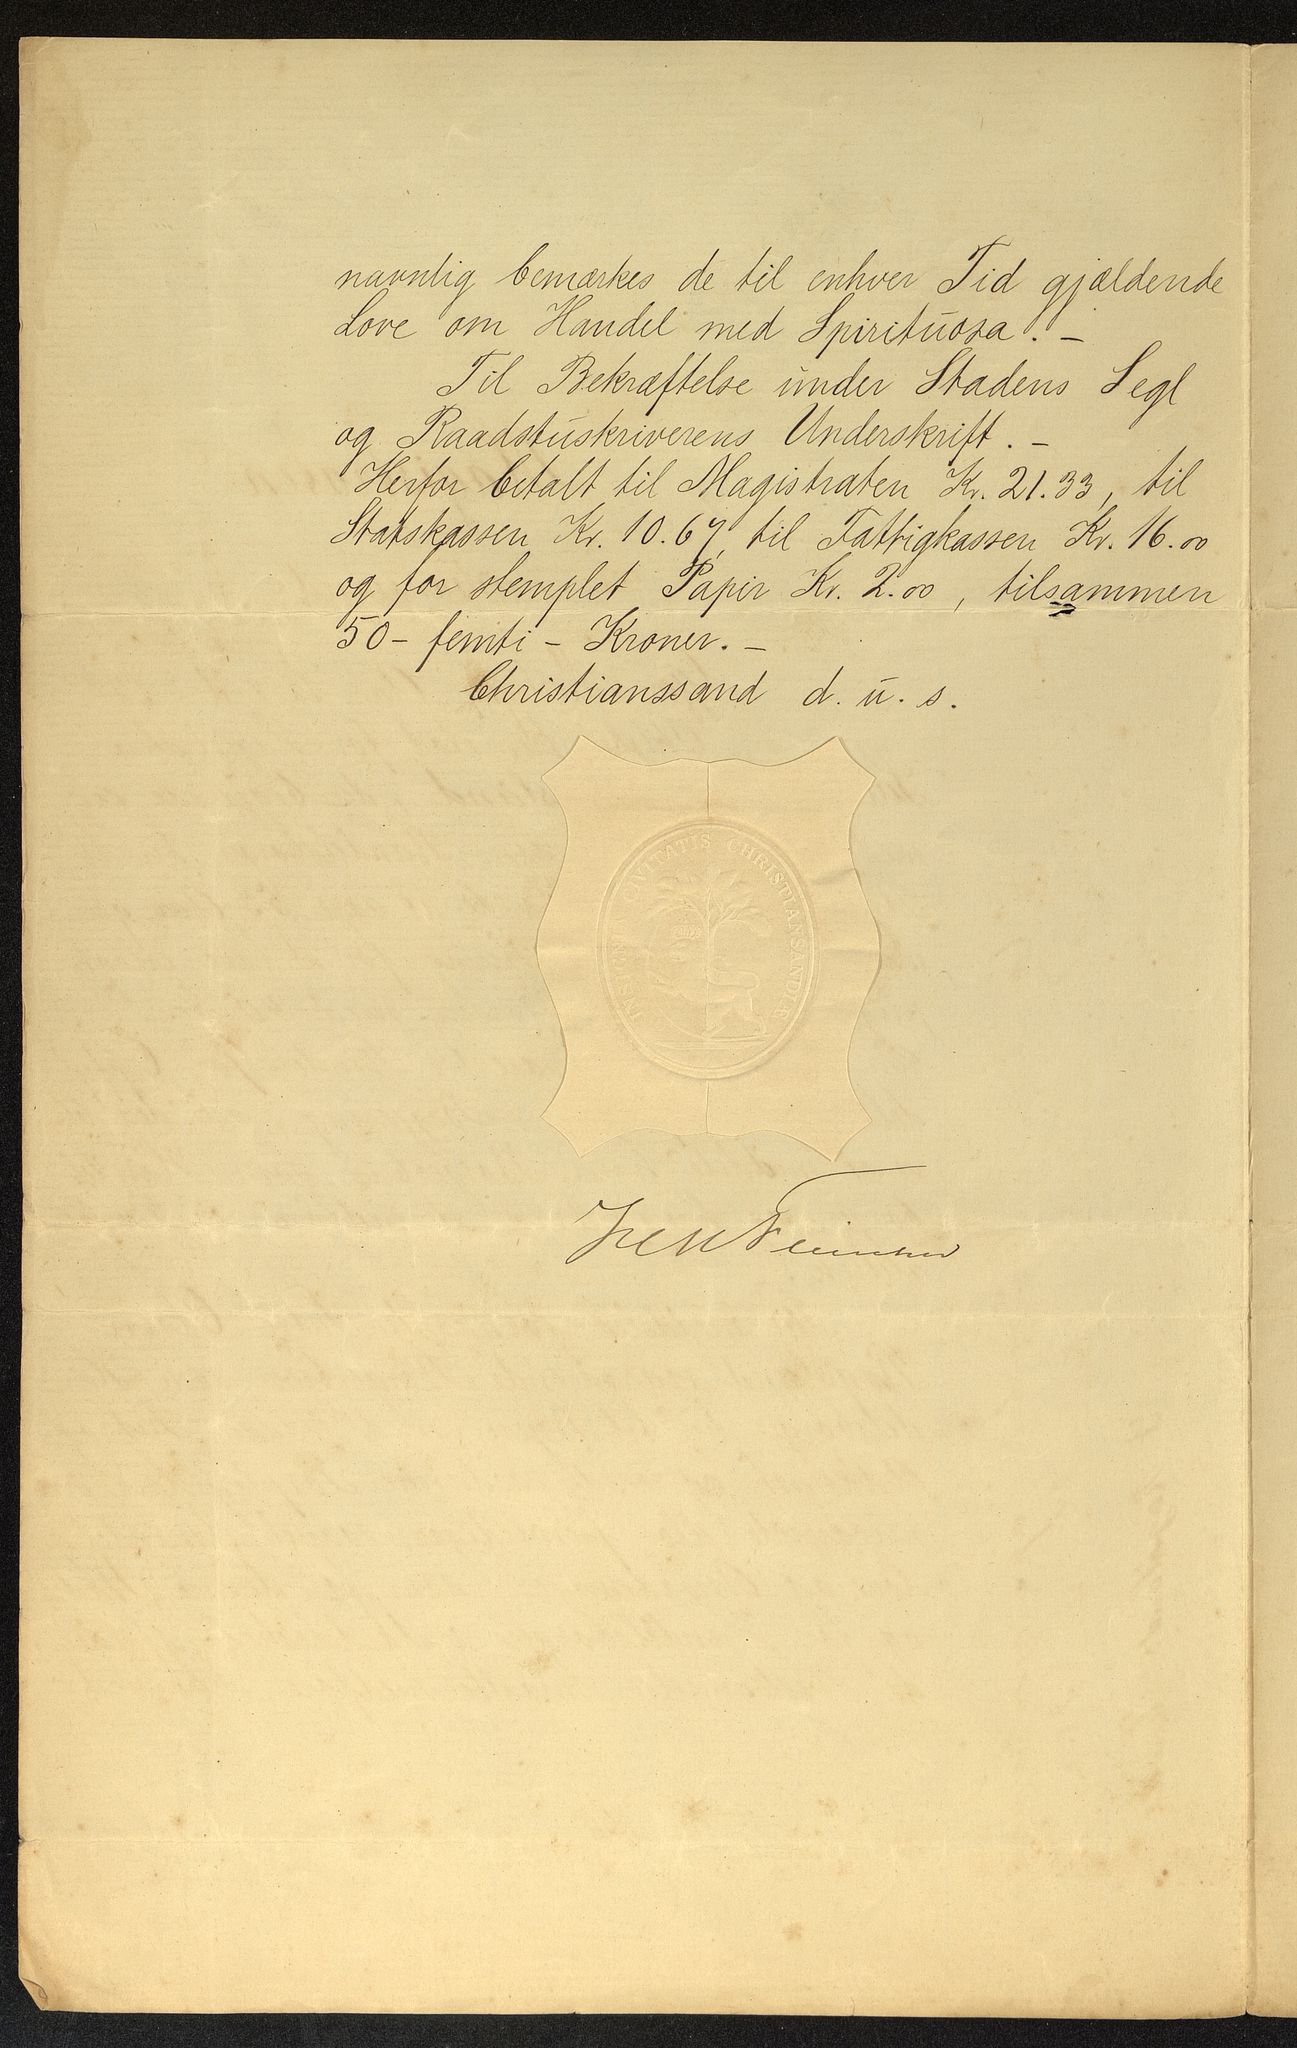 navnlig bemærkes de til enhver Tid gjældende
Love om Handel med Spirituosa. –
Til Bekræftelse under Stadens Segl
og Raadstuskriverens Underskrift. –
Herfor betalt til Magistraten Kr. 21.33, til
Statskassen Kr. 10.67, til Fattigkassen Kr. 16.00
og for stemplet Papir Kr. 2.00, tilsammen
50 – femti – Kroner. –
Christianssand d. u. s.
INSIGNIA CIVITATIS CHRISTIANSANDIÆ